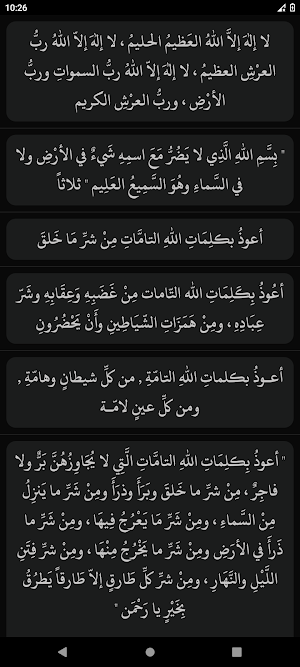 10:26
لا إلهَ إلاَّ اللهُ العَظيمُ الحليمُ ، لا إلهَ إلاّ اللهُ ربُّ
العرْشِ العظيمُ ، لا إلهَ إلاّ اللهُ ربُّ السمواتِ وربُّ
الأرْضِ ، وربُّ العرْشِ الكريم
" بِسْمِ اللهِ الَّذِي لا يَضُرُّ مَعَ اسمِهِ شَيءٌ في الأرْضِ ولا
في السَّماءِ وهُوَ السَّمِيعُ العَلِيم " ثلاثاً
أعوذُ بكلِمَاتِ اللهِ التامَّاتِ مِنْ شرِّ مَا خَلقَ
أعُوذُ بكَلِمَاتِ الله التّامات مِنْ غَضَبِهِ وَعِقَابِهِ وشَرّ
عِبَادِهِ ، ومِنْ هَمَزَاتِ الشّيَاطِينِ وأنْ يَحْضُرُونِ
أعــوذُ بكلماتِ اللهِ التامّةِ , من كلِّ شيطانٍ وهامّةِ ,
ومن كلِّ عينٍ لامّــة
" أعوذُ بِكلِمَاتِ اللهِ التامَّاتِ الَّتِي لا يُجَاوِزُهُنَّ بَرٌّ ولا
فاجِرٌ ، مِنْ شرِّ ما خَلقَ وبَرَأَ وذرَأَ ومِنْ شَرِّ ما يَنزِلُ
مِنْ السَّماءِ ، ومِنْ شَرِّ مَا يَعْرُجُ فِيهَا ، ومِنْ شَرِّ ما
ذَرأَ في الأرَضِ ومِنْ شَرِّ ما يَخْرُجُ مِنْهَا ، ومِنْ شرِّ فِتَنِ
اللَّيْلِ والنَّهَارِ ، ومِنْ شرِّ كلِّ طارقٍ إلاّ طَارقاً يَطرُقُ
بِخَيْرٍ يا رَحْمَن "